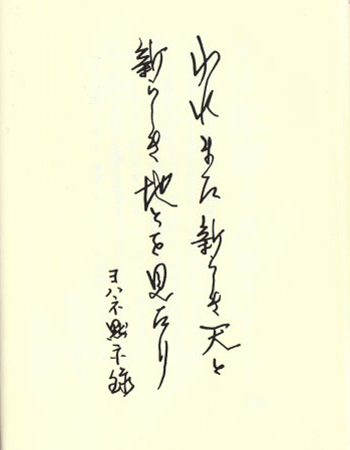 われまた新らしき天と
新らしき地とを見たり
ヨハネ黙示録